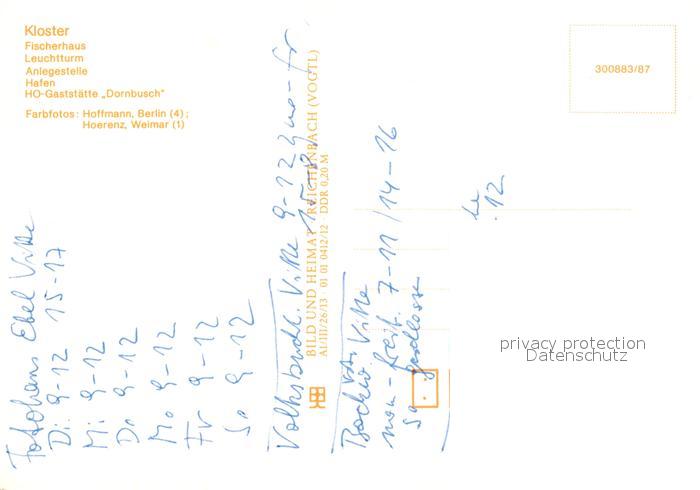 Kloster
Fischerhaus
Leuchtturm
Anlegestelle
Hafen
HO-Gaststätte „Dornbusch"
Farbfotos: Hoffmann, Berlin (4);
Hoerenz, Weimar (1)
300883/87
BILD UND HEIMAT REICHENBACH (VOGTL)
A1/III/26/13 01 01 0412/12 DDR 0,20 M
Fotohaus Ebel Vitte
Di 9-12 15-17
Mi 9-12
Do 9-12
Mo 9-12
Fr 9-12
So 9-12
Volksbuchh. Vitte 9-12 mo-fr
15-
Vitte
mon-freit. 7-11/14-16
12
privacy protection
Datenschutz